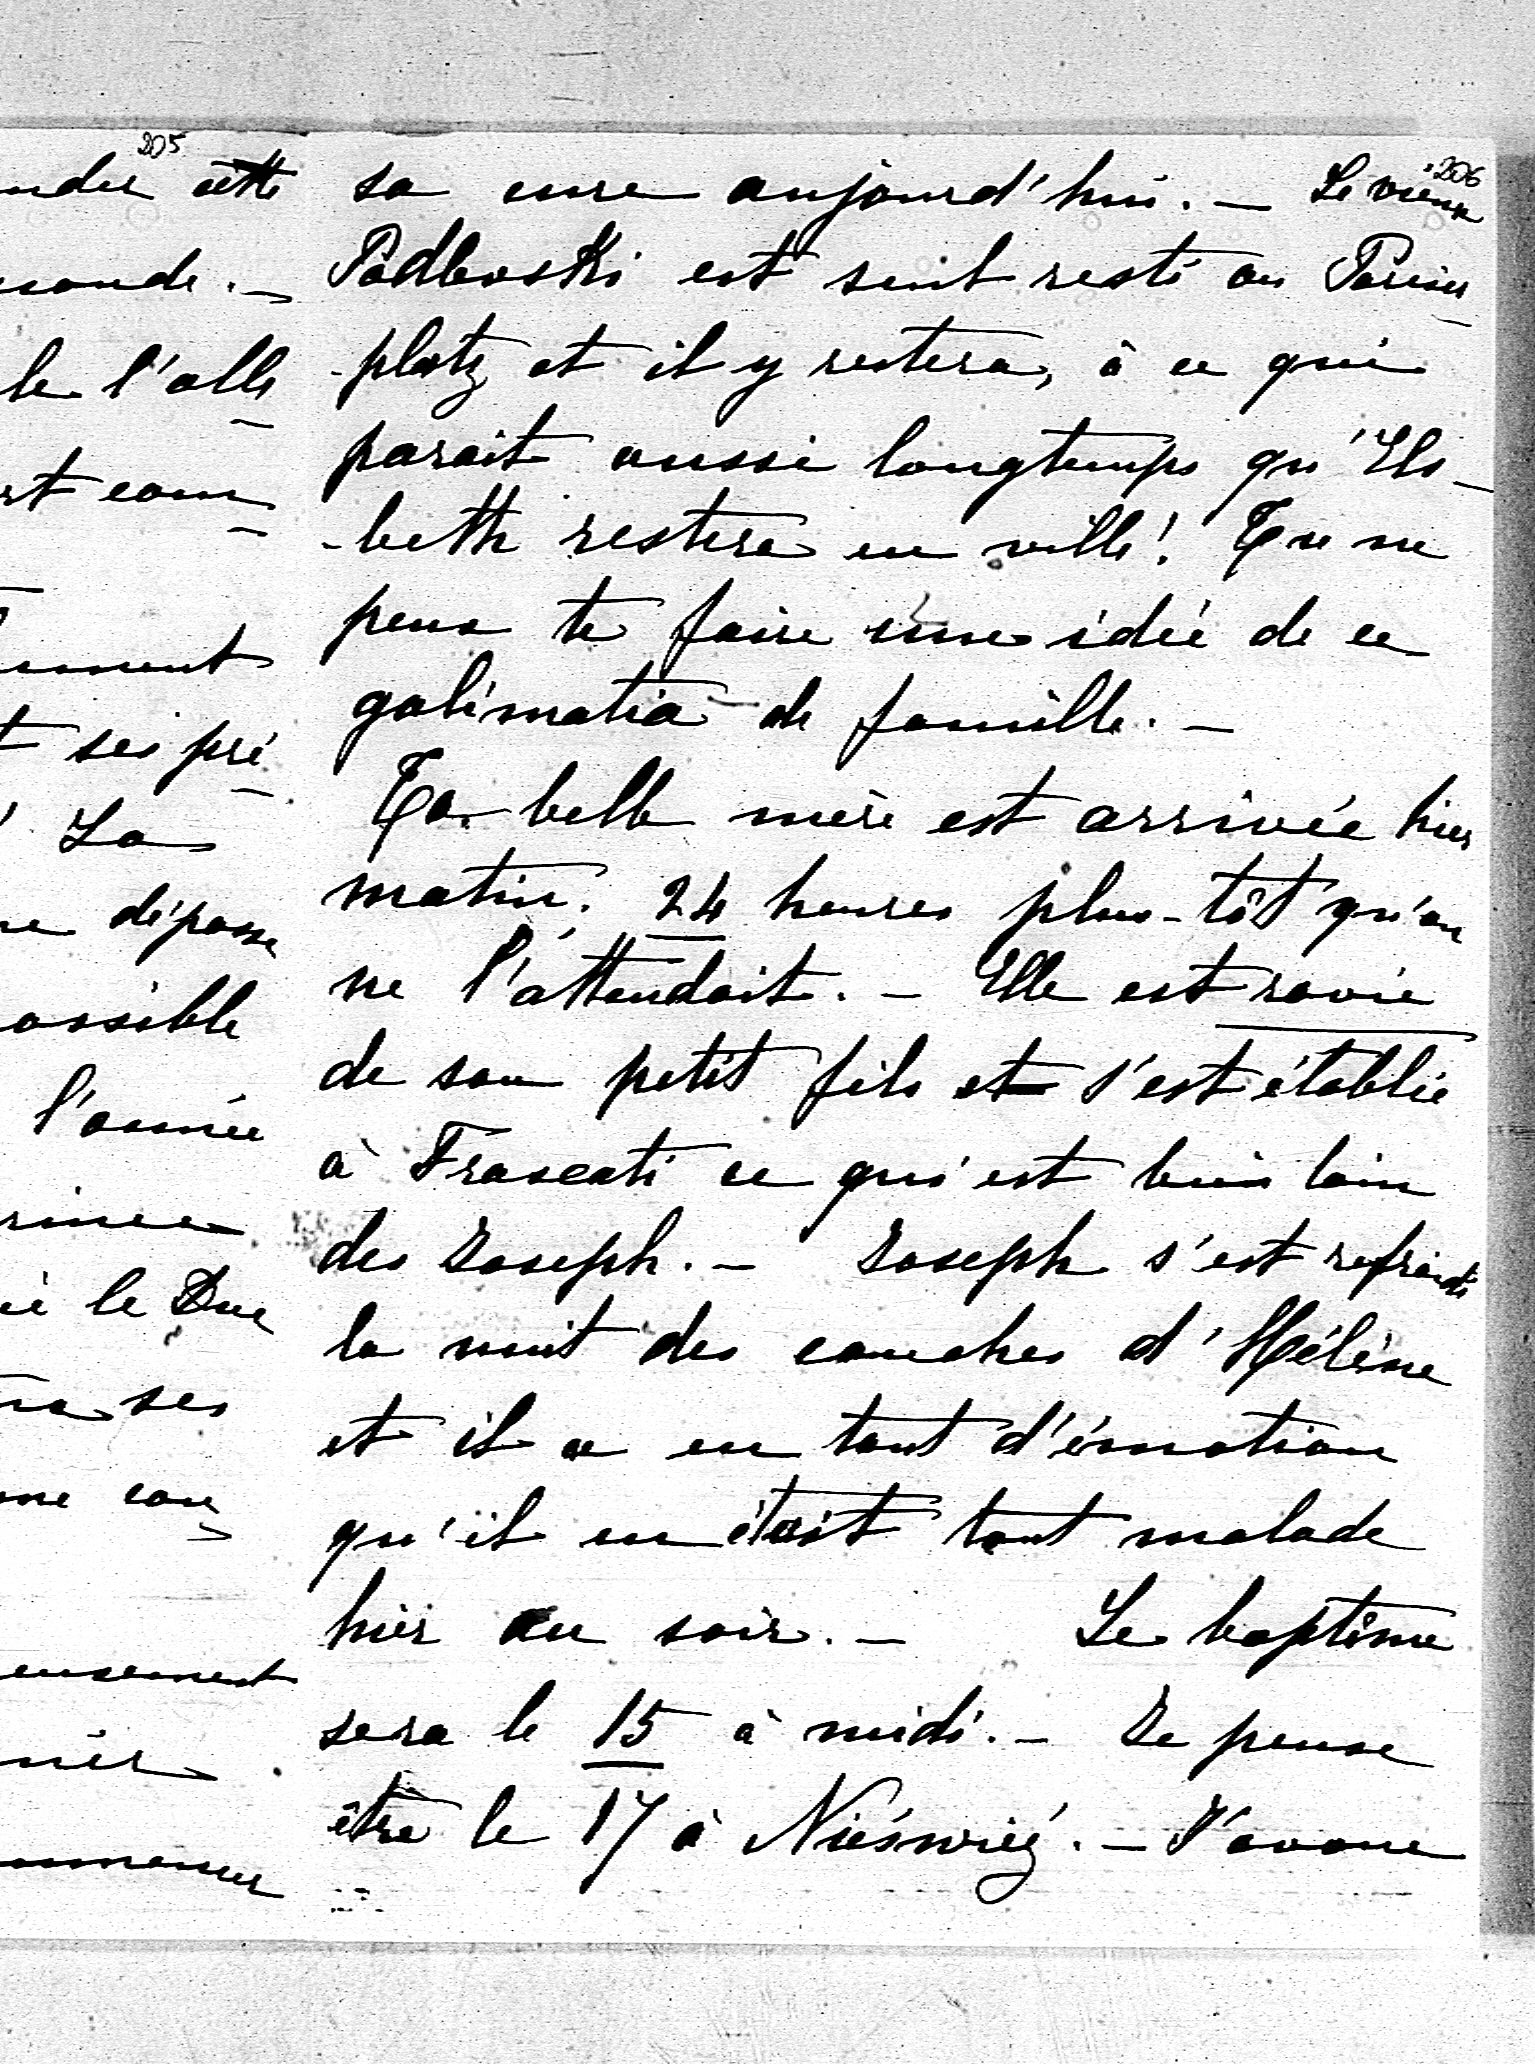 205
nder cette
monde. _
le l'alle_
rt com_
ument
t ses pré_
' La
ne dépasse
ossible
l'année
rince
le Duc
ses
une con_
eusement
nér
ommencer
206
sa cure aujourd'hui. _ Le vieux
Podboski est seul resté au Pariser_
-platz et il y restera, à ce qui
parait aussi longtemps qu'Els_
-beth restera en ville! Tu ne
peux te faire une idée de ce
galimatia de famille. _
Ta belle mère est arrivée hier
matin. 24 heures plus-tôt qu'on
ne l'attendait. _ Elle est ravie
de son petit fils et s'est établie
à Frascati ce qui est bien loin
des Joseph. _ Joseph s'est refroidi
la nuit des couches d'Hélène
et il a eu tant d'émotion
qu'il en était tout malade
hier au soir. _ Le baptême
sera le 15 à midi. _ Je pense
être le 17 à Nieśwież. _ J'avoue